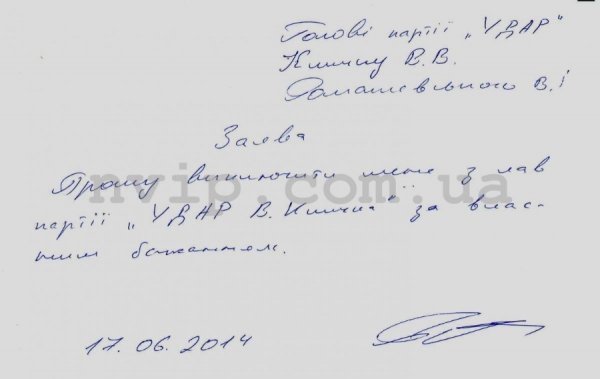 Голові партії „УДАР"
Кличку В.В.
Ромашевського В.І
Заява
Прошу виключити мене з лав
nvip.com.ua
партії „УДАР В. Кличка" за влас-
ним бажанням.
17.06.2014